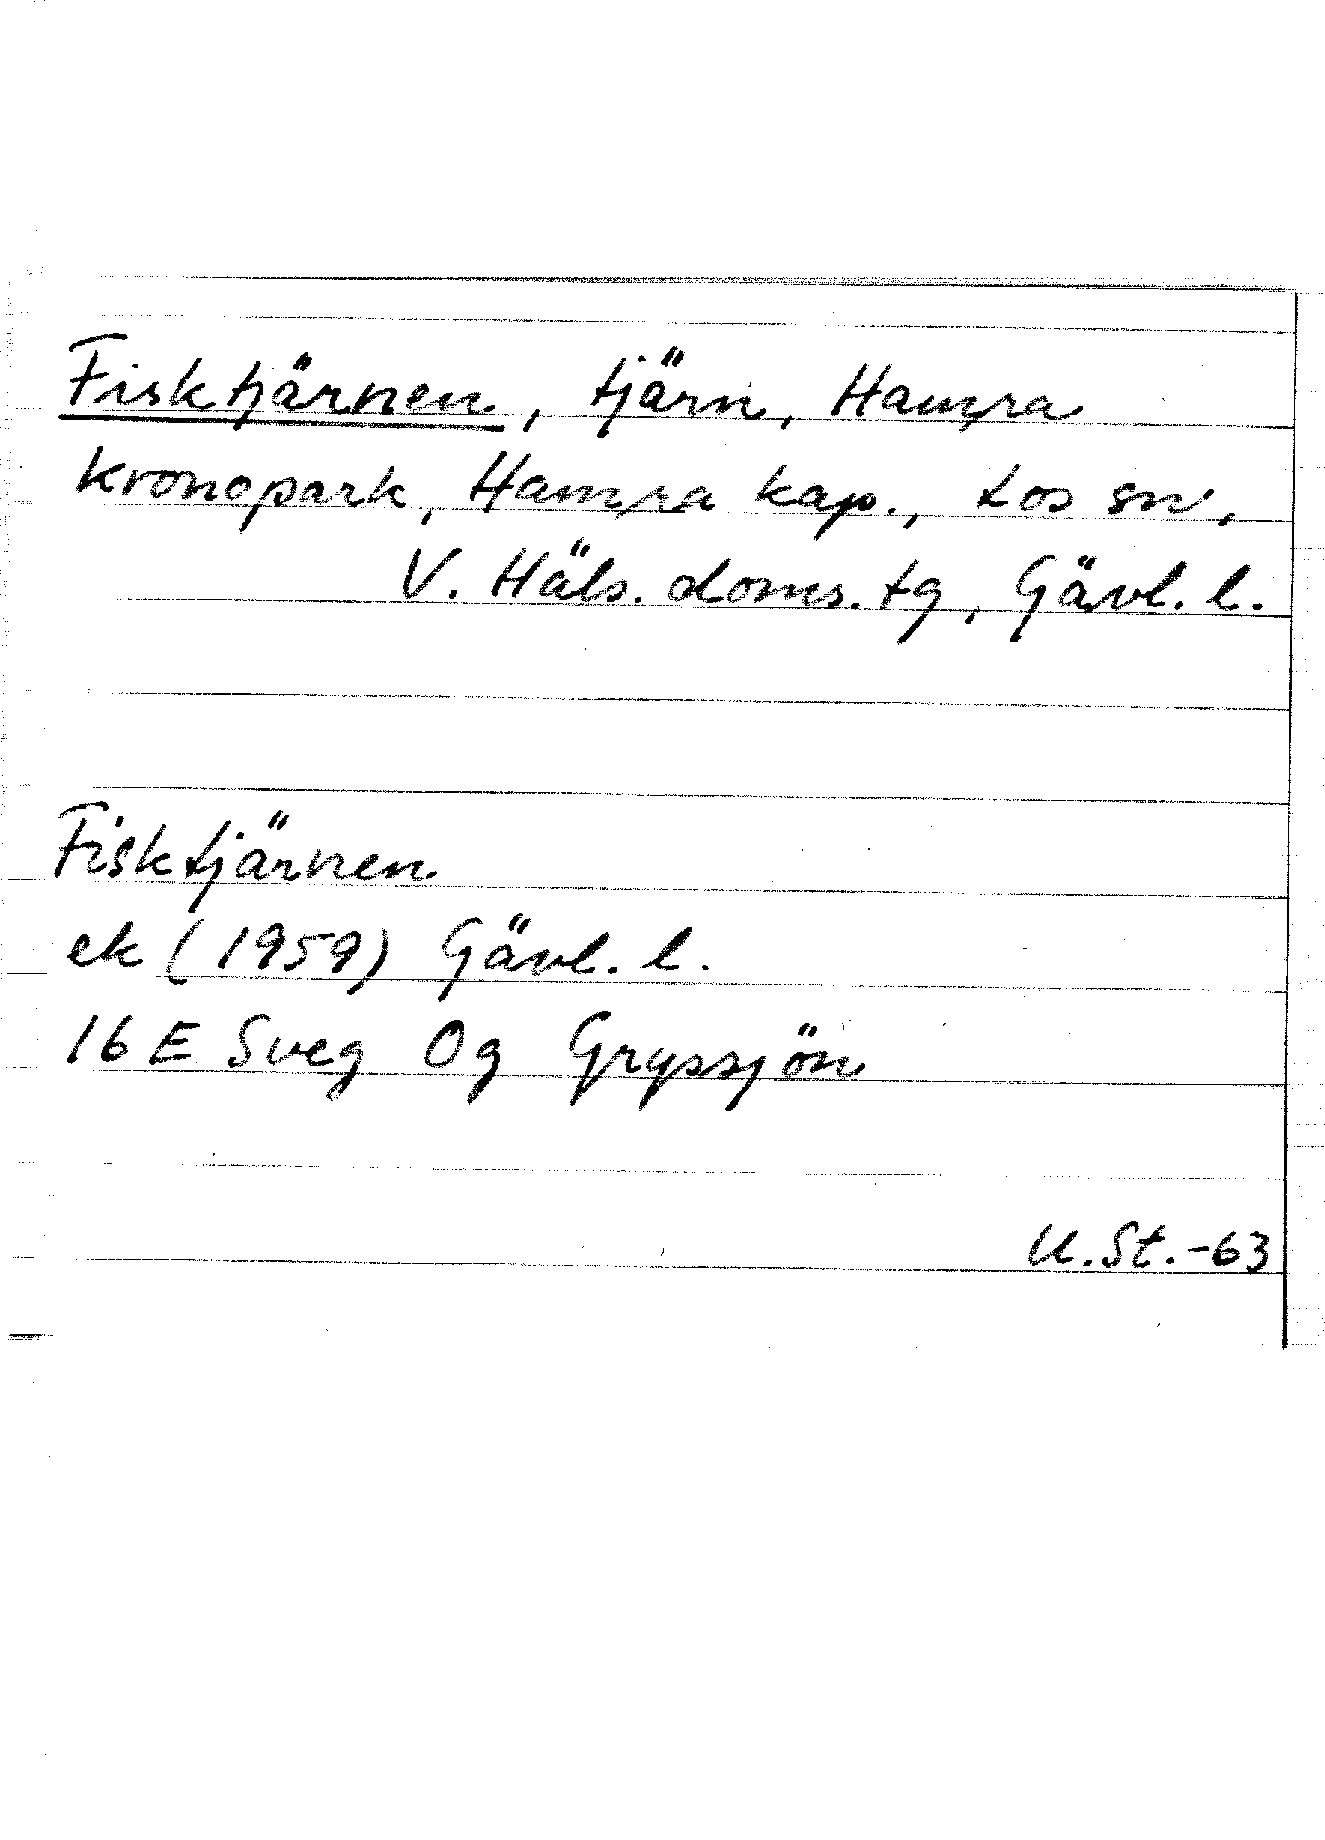 Fisktjärnen, tjärn, Hamra
kronopark, Hamra kap., Los sn,
V. Häls. doms. tg, Gävl. l.
Fisktjärnen
ek (1959) Gävl. l.
16 E Sveg 0g Gryssjön
U.St.-63